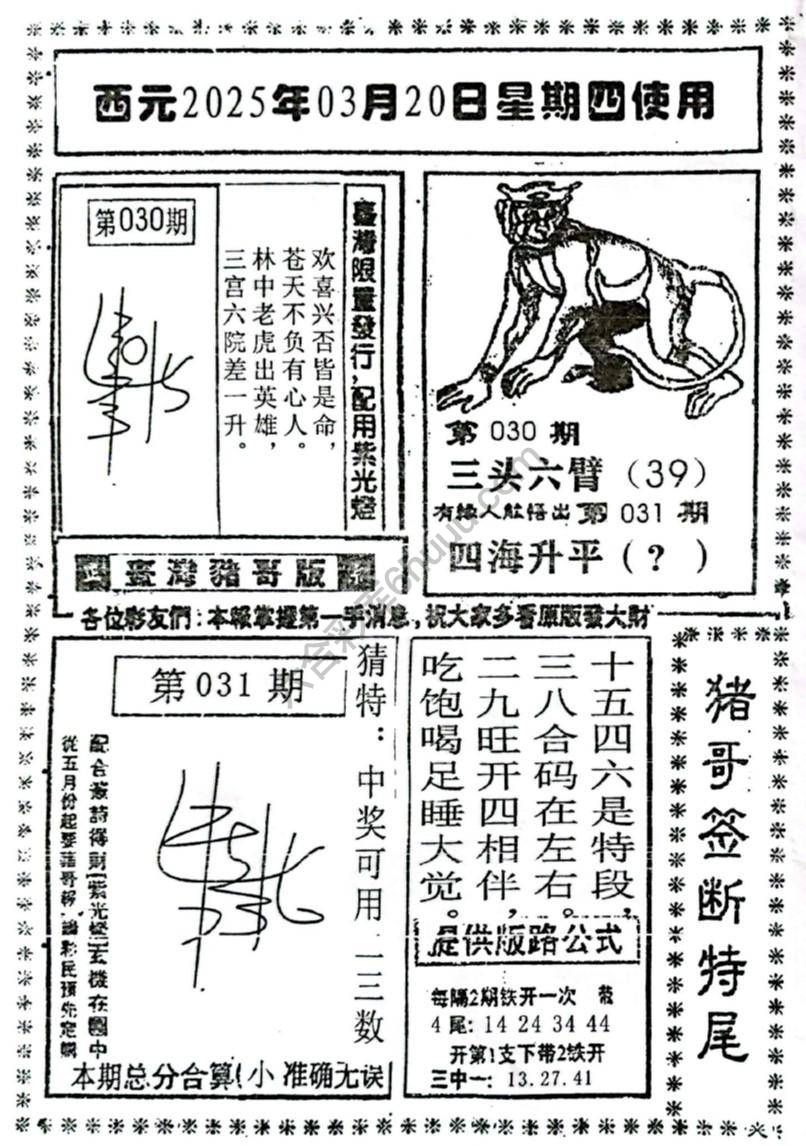 西元2025年03月20日星期四使用
第030期
臺灣限量發行，配用紫光燈
欢喜兴否皆是命，
苍天不负有心人。
林中老虎出英雄，
三宫六院差一升。
第 030 期
三头六臂（39）
有緣人能悟出 第 031 期
四海升平（？）
臺灣豬哥版
各位彩友們：本報掌握第一手消息，祝大家多看原版發大財
第 031 期
猜特：中奖可用一二三数
配合簽詩得財【紫光燈】玄機在圖中
從五月份起要豬哥報，請彩民預先定購
本期总分合算（小 准确无误
十五四六是特段，
三八合码在左右。
二九旺开四相伴，
吃饱喝足睡大觉。
提供版路公式
每隔2期铁开一次
4尾：14 24 34 44
开第1支下带2铁开
三中一：13.27.41
猪哥签断特尾
六合彩库6huuu.com